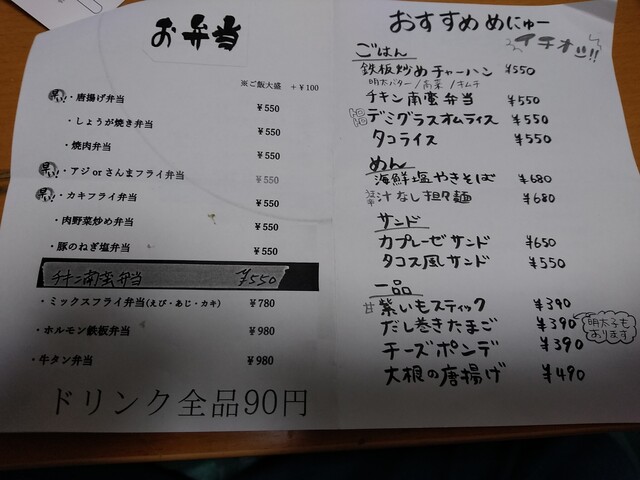 お弁当
※ご飯大盛 +¥100
・唐揚げ弁当 ¥550
・しょうが焼き弁当 ¥550
・焼肉弁当 ¥550
・アジ or さんまフライ弁当 ¥550
・カキフライ弁当 ¥550
・肉野菜炒め弁当 ¥550
・豚のねぎ塩弁当 ¥550
チキン南蛮弁当 ¥550
・ミックスフライ弁当(えび・あじ・カキ) ¥780
・ホルモン鉄板弁当 ¥980
・牛タン弁当 ¥980
ドリンク全品90円
おすすめめにゅー
イチオシ!!
ごはん
鉄板炒めチャーハン ¥550
明太バター/高菜/キムチ
チキン南蛮弁当 ¥550
デミグラスオムライス ¥550
タコライス ¥550
めん
海鮮塩やきそば ¥680
汁なし担々麺 ¥680
サンド
カプレーゼサンド ¥650
タコス風サンド ¥550
一品
甘 紫いもスティック ¥390
だし巻きたまご ¥390
明太子も
あります
チーズポンデ ¥390
大根の唐揚げ ¥490